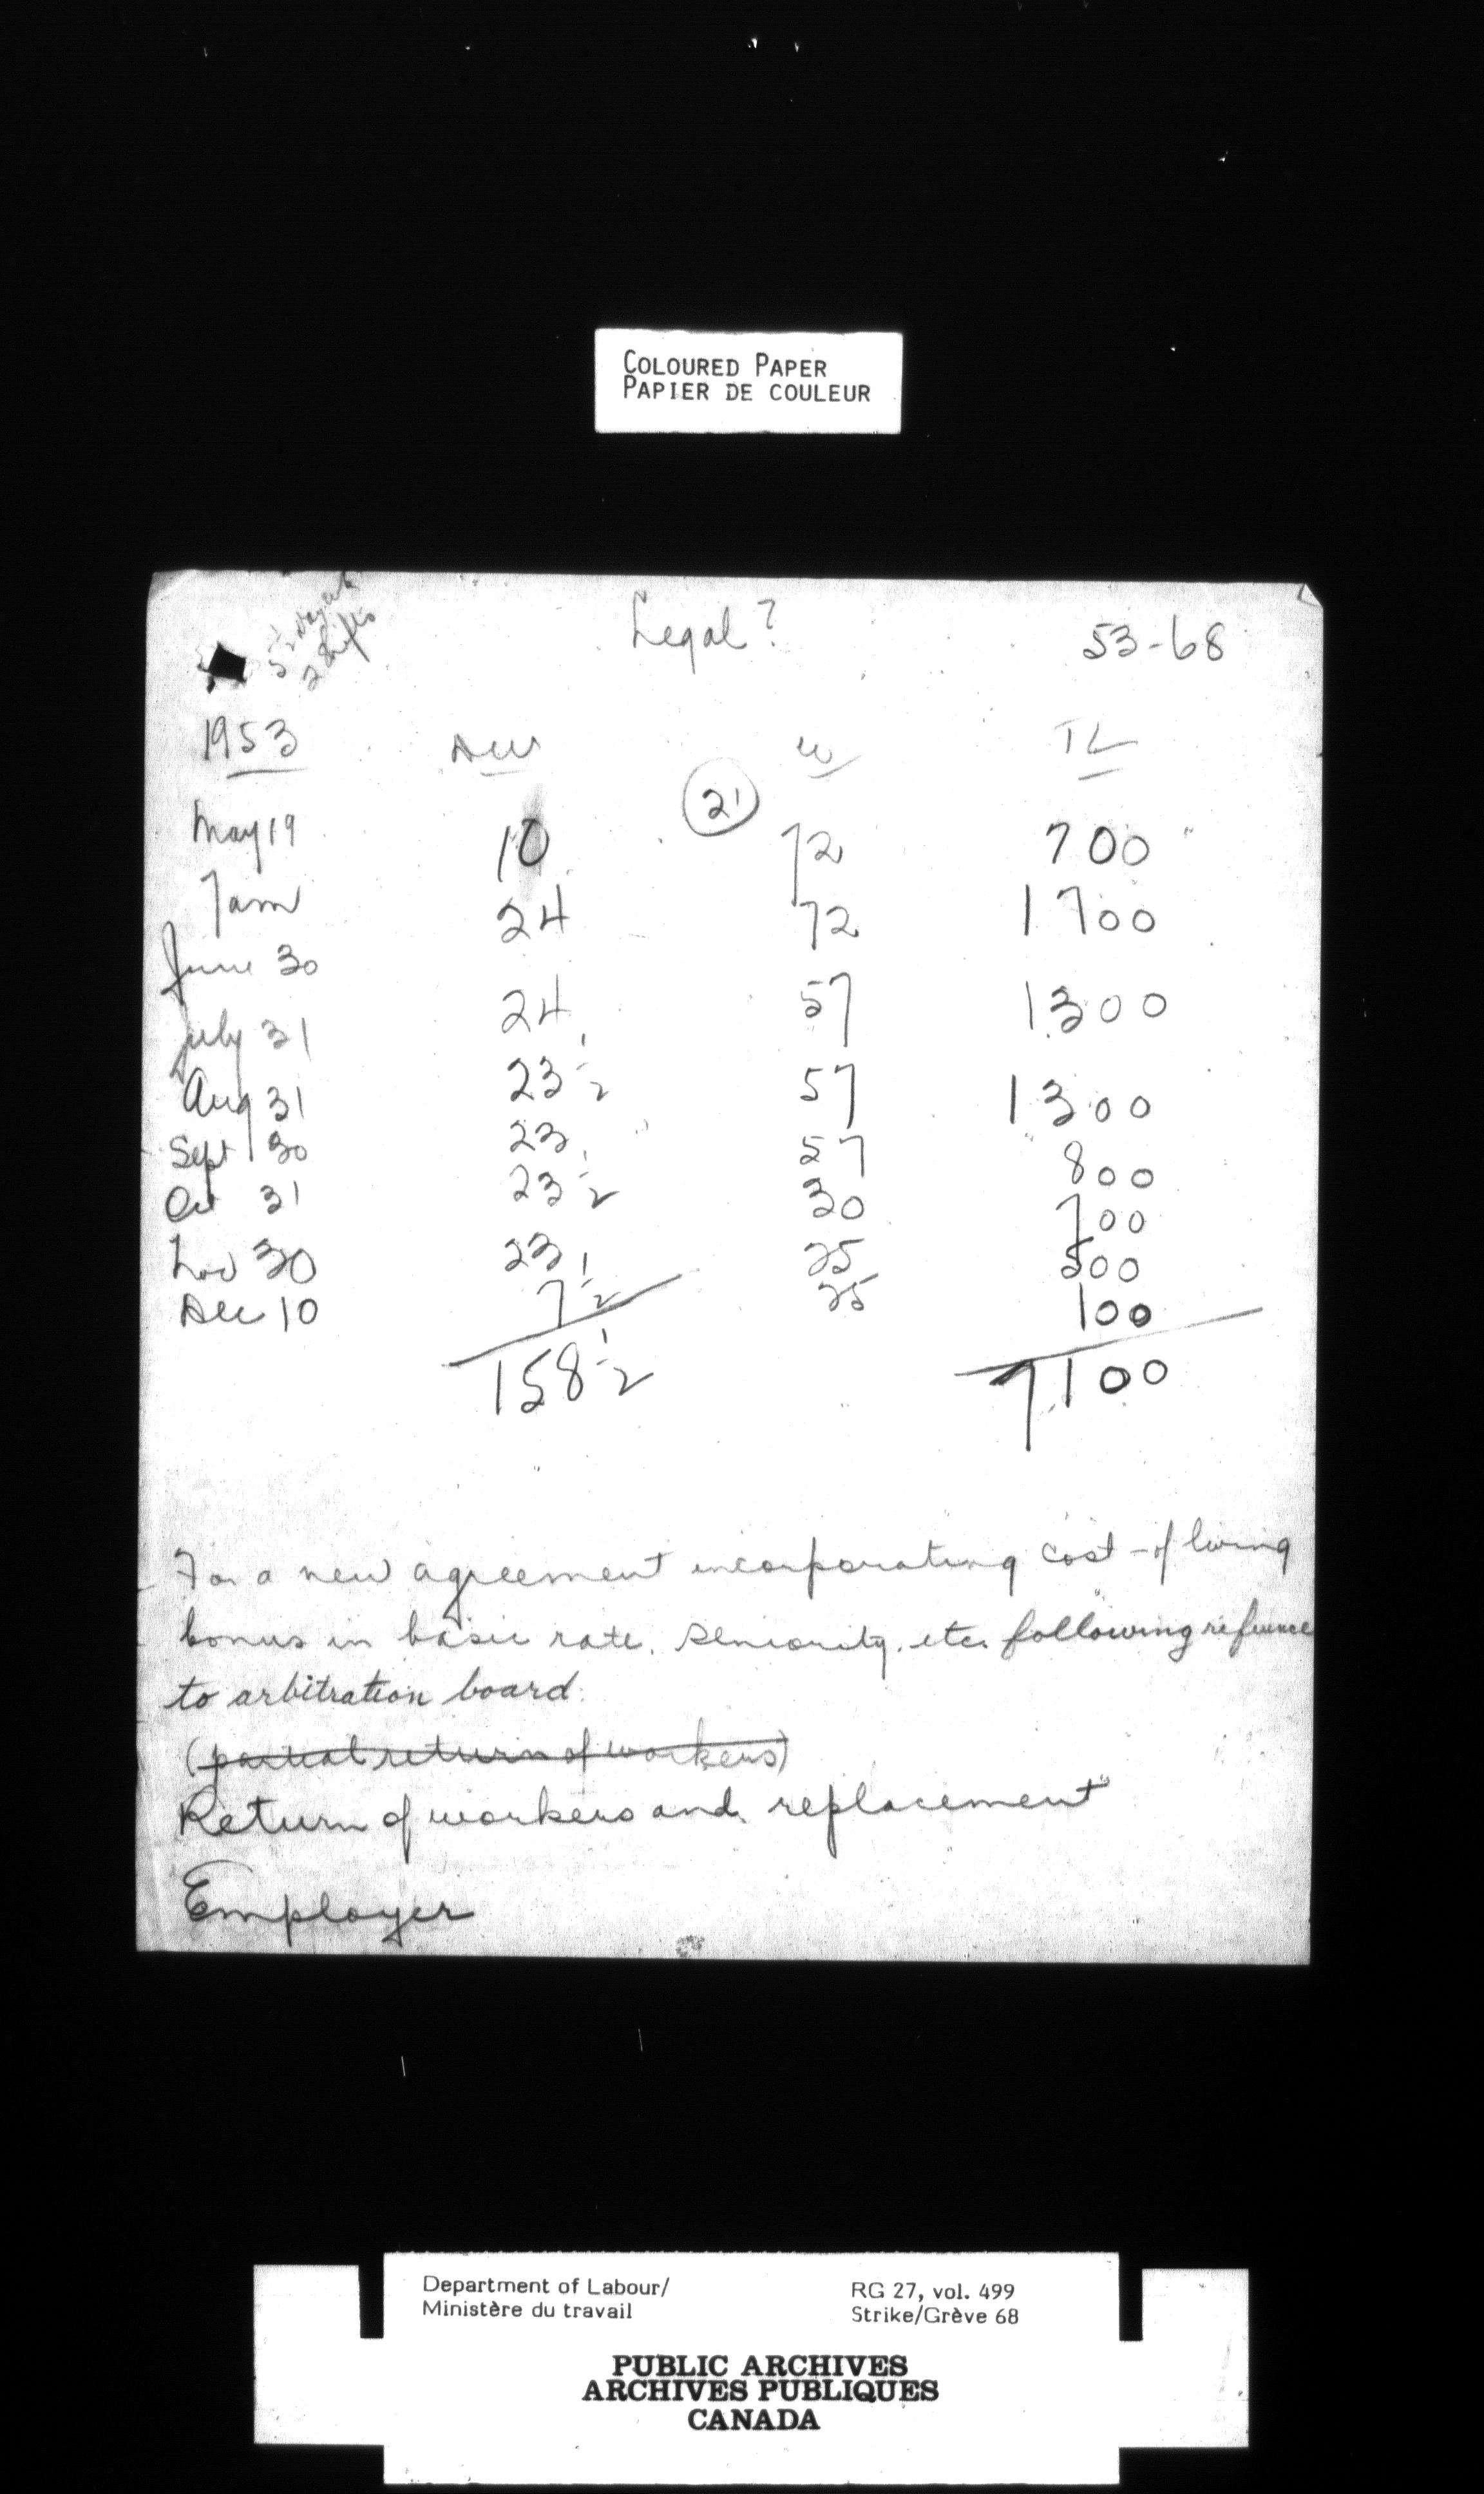 COLOURED PAPER
PAPIER DE COULEUR
5 1/2 day wk
2 shifts
Legal?
53-68
1953 DW W TL
21
May 19 10 72 700
7am
24 72 1700
June 30
24 57 1300
July 31
23 1/2 57 1300
Aug 31
Sept 30 23 57 800
Oct 31 23 1/2 30 700
Nov 30 23 25 500
Dec 10 7 1/2 25 100
158 1/2 7100
For a new agreement incorporating cost-of living
bonus in basic rate, seniority, etc. following reference
to arbitration board.
(partial return of workers)
Return of workers and replacement
Employer
Department of Labour/
Ministère du travail
RG 27, vol. 499
Strike/Grève 68
PUBLIC ARCHIVES
ARCHIVES PUBLIQUES
CANADA